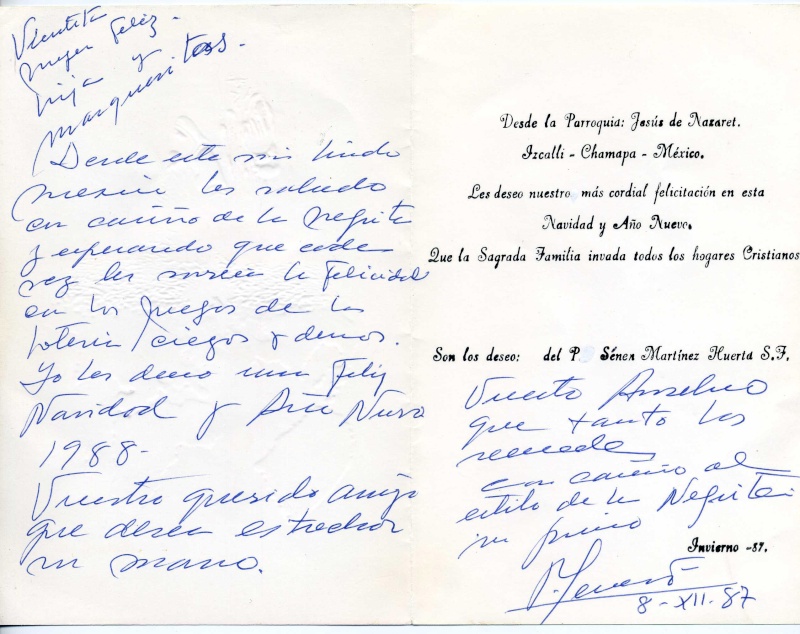 Vicentita
mujer feliz.
hija y
margaritas.
Desde este mi lindo
mexico les saludo
con cariño de la Negrita
y esperando que cada
vez les sonria la felicidad
en los juegos de la
loteria, ciegos y demas.
Yo les deseo una Feliz
Navidad y Año Nuevo
1988-
Vuestro querido amigo
que desea estrechar
su mano.
Desde la Parroquia: Jesús de Nazaret.
Izcalli - Chamapa - México.
Les deseo nuestro más cordial felicitación en esta
Navidad y Año Nuevo.
Que la Sagrada Familia invada todos los hogares Cristianos
Son los deseo: del P. Sénen Martínez Huerta S.F.
Vuestro Anselmo
que tanto los
recuerda
con cariño al
estilo de la Negrita
su primo
Invierno -87.
8-XII-87